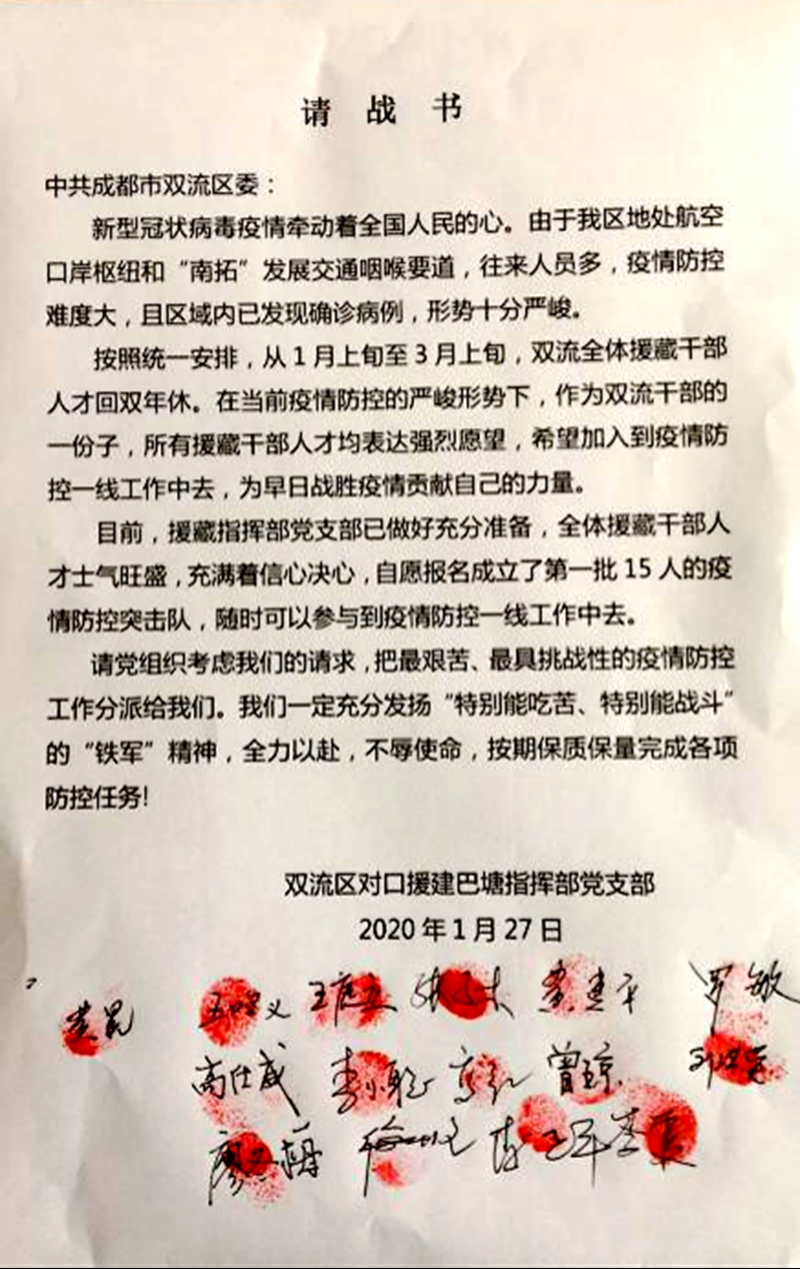 请战书
中共成都市双流区委：
新型冠状病毒疫情牵动着全国人民的心。由于我区地处航空
口岸枢纽和“南拓”发展交通咽喉要道，往来人员多，疫情防控
难度大，且区域内已发现确诊病例，形势十分严峻。
按照统一安排，从1月上旬至3月上旬，双流全体援藏干部
人才回双年休。在当前疫情防控的严峻形势下，作为双流干部的
一份子，所有援藏干部人才均表达强烈愿望，希望加入到疫情防
控一线工作中去，为早日战胜疫情贡献自己的力量。
目前，援藏指挥部党支部已做好充分准备，全体援藏干部人
才士气旺盛，充满着信心决心，自愿报名成立了第一批15人的疫
情防控突击队，随时可以参与到疫情防控一线工作中去。
请党组织考虑我们的请求，把最艰苦、最具挑战性的疫情防控
工作分派给我们。我们一定充分发扬“特别能吃苦、特别能战斗”
的“铁军”精神，全力以赴，不辱使命，按期保质保量完成各项
防控任务!
双流区对口援建巴塘指挥部党支部
2020年1月27日
罗敏
高仕威 曾琼